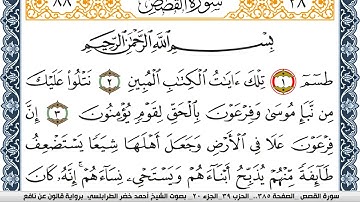 ٨٨ سُورَةُ القَصَصِ ٢٨
بِسْمِ اللَّهِ الرَّحْمَٰنِ الرَّحِيمِ
طسٓمٓ ١ تِلْكَ ءَايَٰتُ الْكِتَٰبِ الْمُبِينِ ٢ نَتْلُوا۟ عَلَيْكَ
مِن نَّبَإِ مُوسَىٰ وَفِرْعَوْنَ بِالْحَقِّ لِقَوْمٍ يُؤْمِنُونَ ٣ إِنَّ
فِرْعَوْنَ عَلَا فِي الْأَرْضِ وَجَعَلَ أَهْلَهَا شِيَعًا يَسْتَضْعِفُ
طَآئِفَةً مِّنْهُمْ يُذَبِّحُ أَبْنَآءَهُمْ وَيَسْتَحْيِۦ نِسَآءَهُمْ إِنَّهُۥ كَانَ
سورة القصص الصفحة ٣٨٥... الحزب ٣٩ الجزء ٢٠ بصوت الشيخ أحمد خضر الطرابلسي. برواية قالون عن نافع